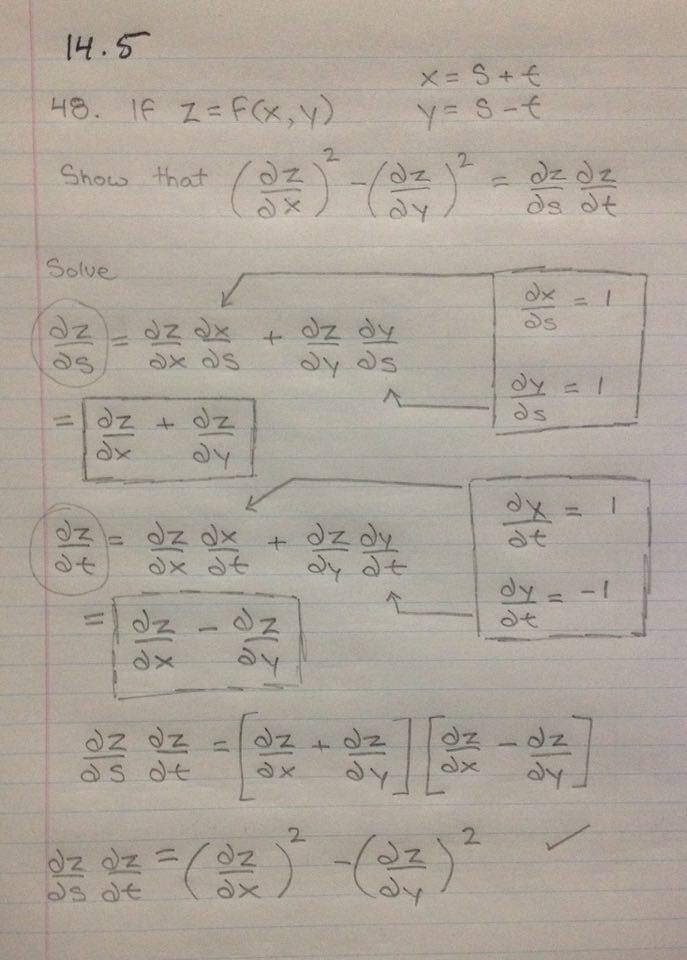 14.5
x = s + t
48. If z = F(x, y) y = s - t
Show that (∂z/∂x)² - (∂z/∂y)² = ∂z/∂s ∂z/∂t
Solve
∂z/∂s = ∂z/∂x ∂x/∂s + ∂z/∂y ∂y/∂s
∂x/∂s = 1
∂y/∂s = 1
= ∂z/∂x + ∂z/∂y
∂z/∂t = ∂z/∂x ∂x/∂t + ∂z/∂y ∂y/∂t
∂x/∂t = 1
∂y/∂t = -1
= ∂z/∂x - ∂z/∂y
∂z/∂s ∂z/∂t = [∂z/∂x + ∂z/∂y] [∂z/∂x - ∂z/∂y]
∂z/∂s ∂z/∂t = (∂z/∂x)² - (∂z/∂y)² ✓